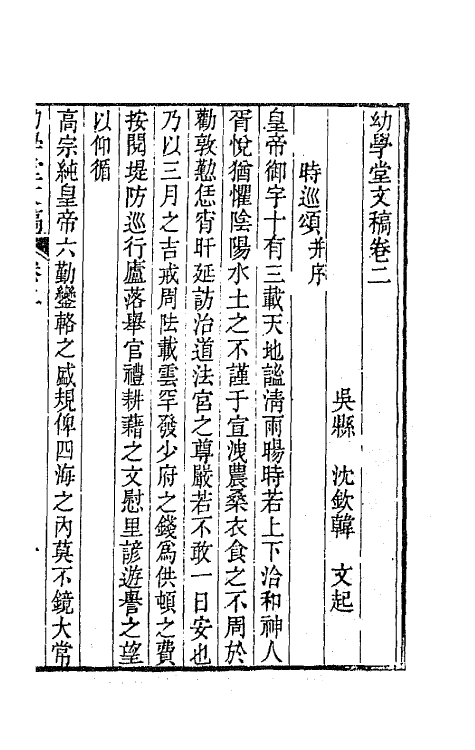 幼學堂文稿卷二
吳縣 沈欽韓 文起
時巡頌并序
皇帝御宇十有三載天地謐清雨暘時若上下洽和神人
胥悅猶懼陰陽水土之不謹于宣洩農桑衣食之不周於
勸敦懃恁宵旰延訪治道法宮之尊嚴若不敢一日安也
乃以三月之吉戒周陸載雲罕發少府之錢爲供頓之費
按閱堤防巡行廬落舉官禮耕藉之文慰里諺遊譽之望
以仰循
高宗純皇帝六勤鑾輅之盛規俾四海之內莫不鏡大常